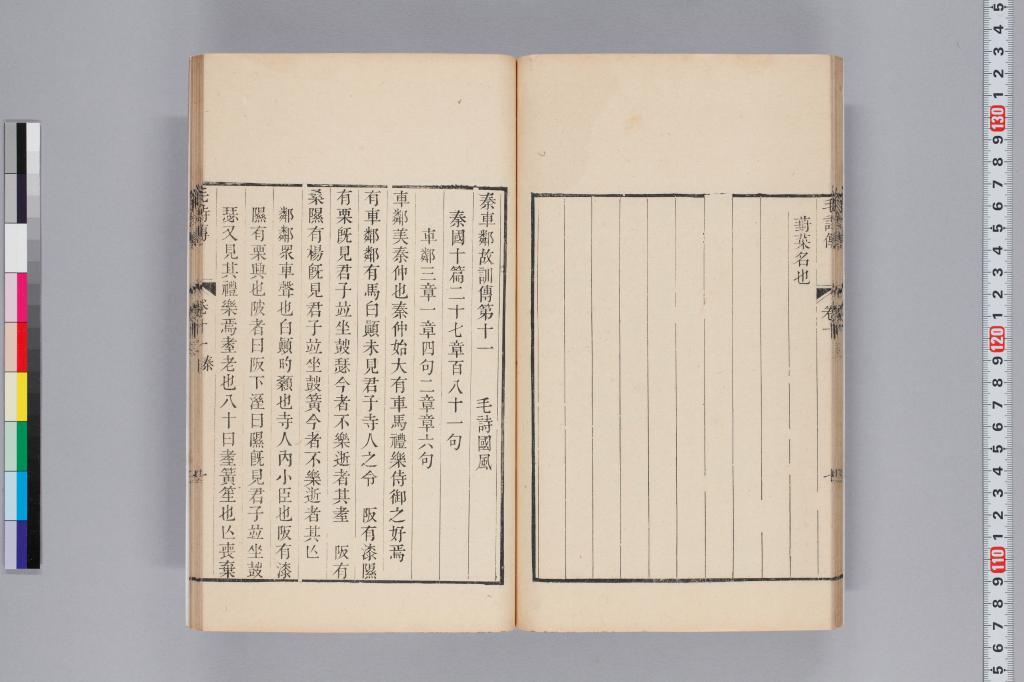 毛詩傳
卷十
葑菜名也
秦車鄰故訓傳第十一 毛詩國風
秦國十篇二十七章百八十一句
車鄰三章一章四句二章章六句
車鄰美秦仲也秦仲始大有車馬禮樂侍御之好焉
有車鄰鄰有馬白顚未見君子寺人之令 阪有漆隰
有栗旣見君子竝坐鼓瑟今者不樂逝者其耋 阪有
桑隰有楊旣見君子竝坐鼓簧今者不樂逝者其亾
鄰鄰眾車聲也白顚旳顙也寺人內小臣也阪有漆
隰有栗興也陂者曰阪下溼曰隰旣見君子竝坐鼓
瑟又見其禮樂焉耋老也八十曰耋簧笙也亾喪棄
毛詩傳
卷十一 秦
一
5
4
3
2
1
130
9
8
7
6
5
4
3
2
1
120
9
8
7
6
5
4
3
2
1
110
9
8
7
6
5